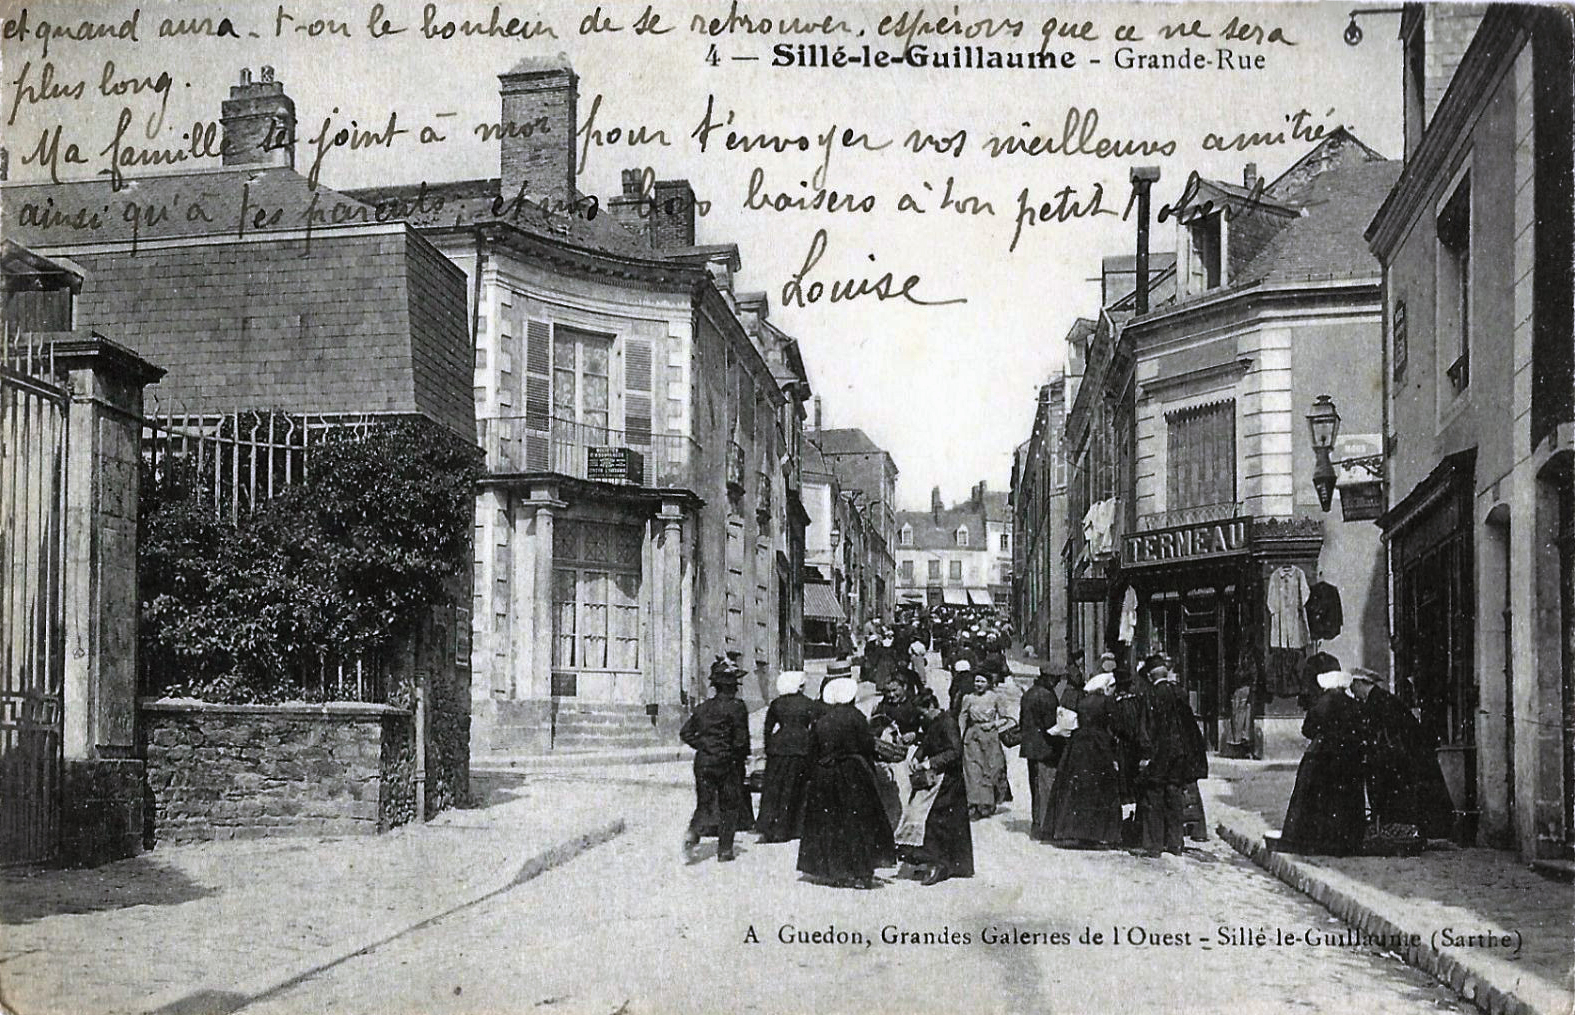 et quand aura-t-on le bonheur de se retrouver, espérons que ce ne sera
4 — Sillé-le-Guillaume - Grande-Rue
plus long.
Ma famille se joint à moi pour t'envoyer nos meilleures amitiés
ainsi qu'à tes parents, et nos bons baisers à ton petit Robert
Louise
TERMEAU
A Guedon, Grandes Galeries de l'Ouest - Sillé-le-Guillaume (Sarthe)